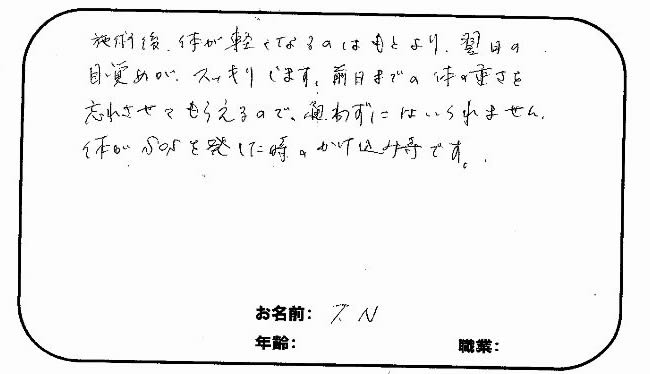 施術後、体が軽くなるのはもとより、翌日の
目覚めが、スッキリします。前日までの体の重さを
忘れさせてもらえるので、通わずにはいられません。
体がSOSを発した時のかけ込み寺です。
お名前: T.N
年齢:
職業: